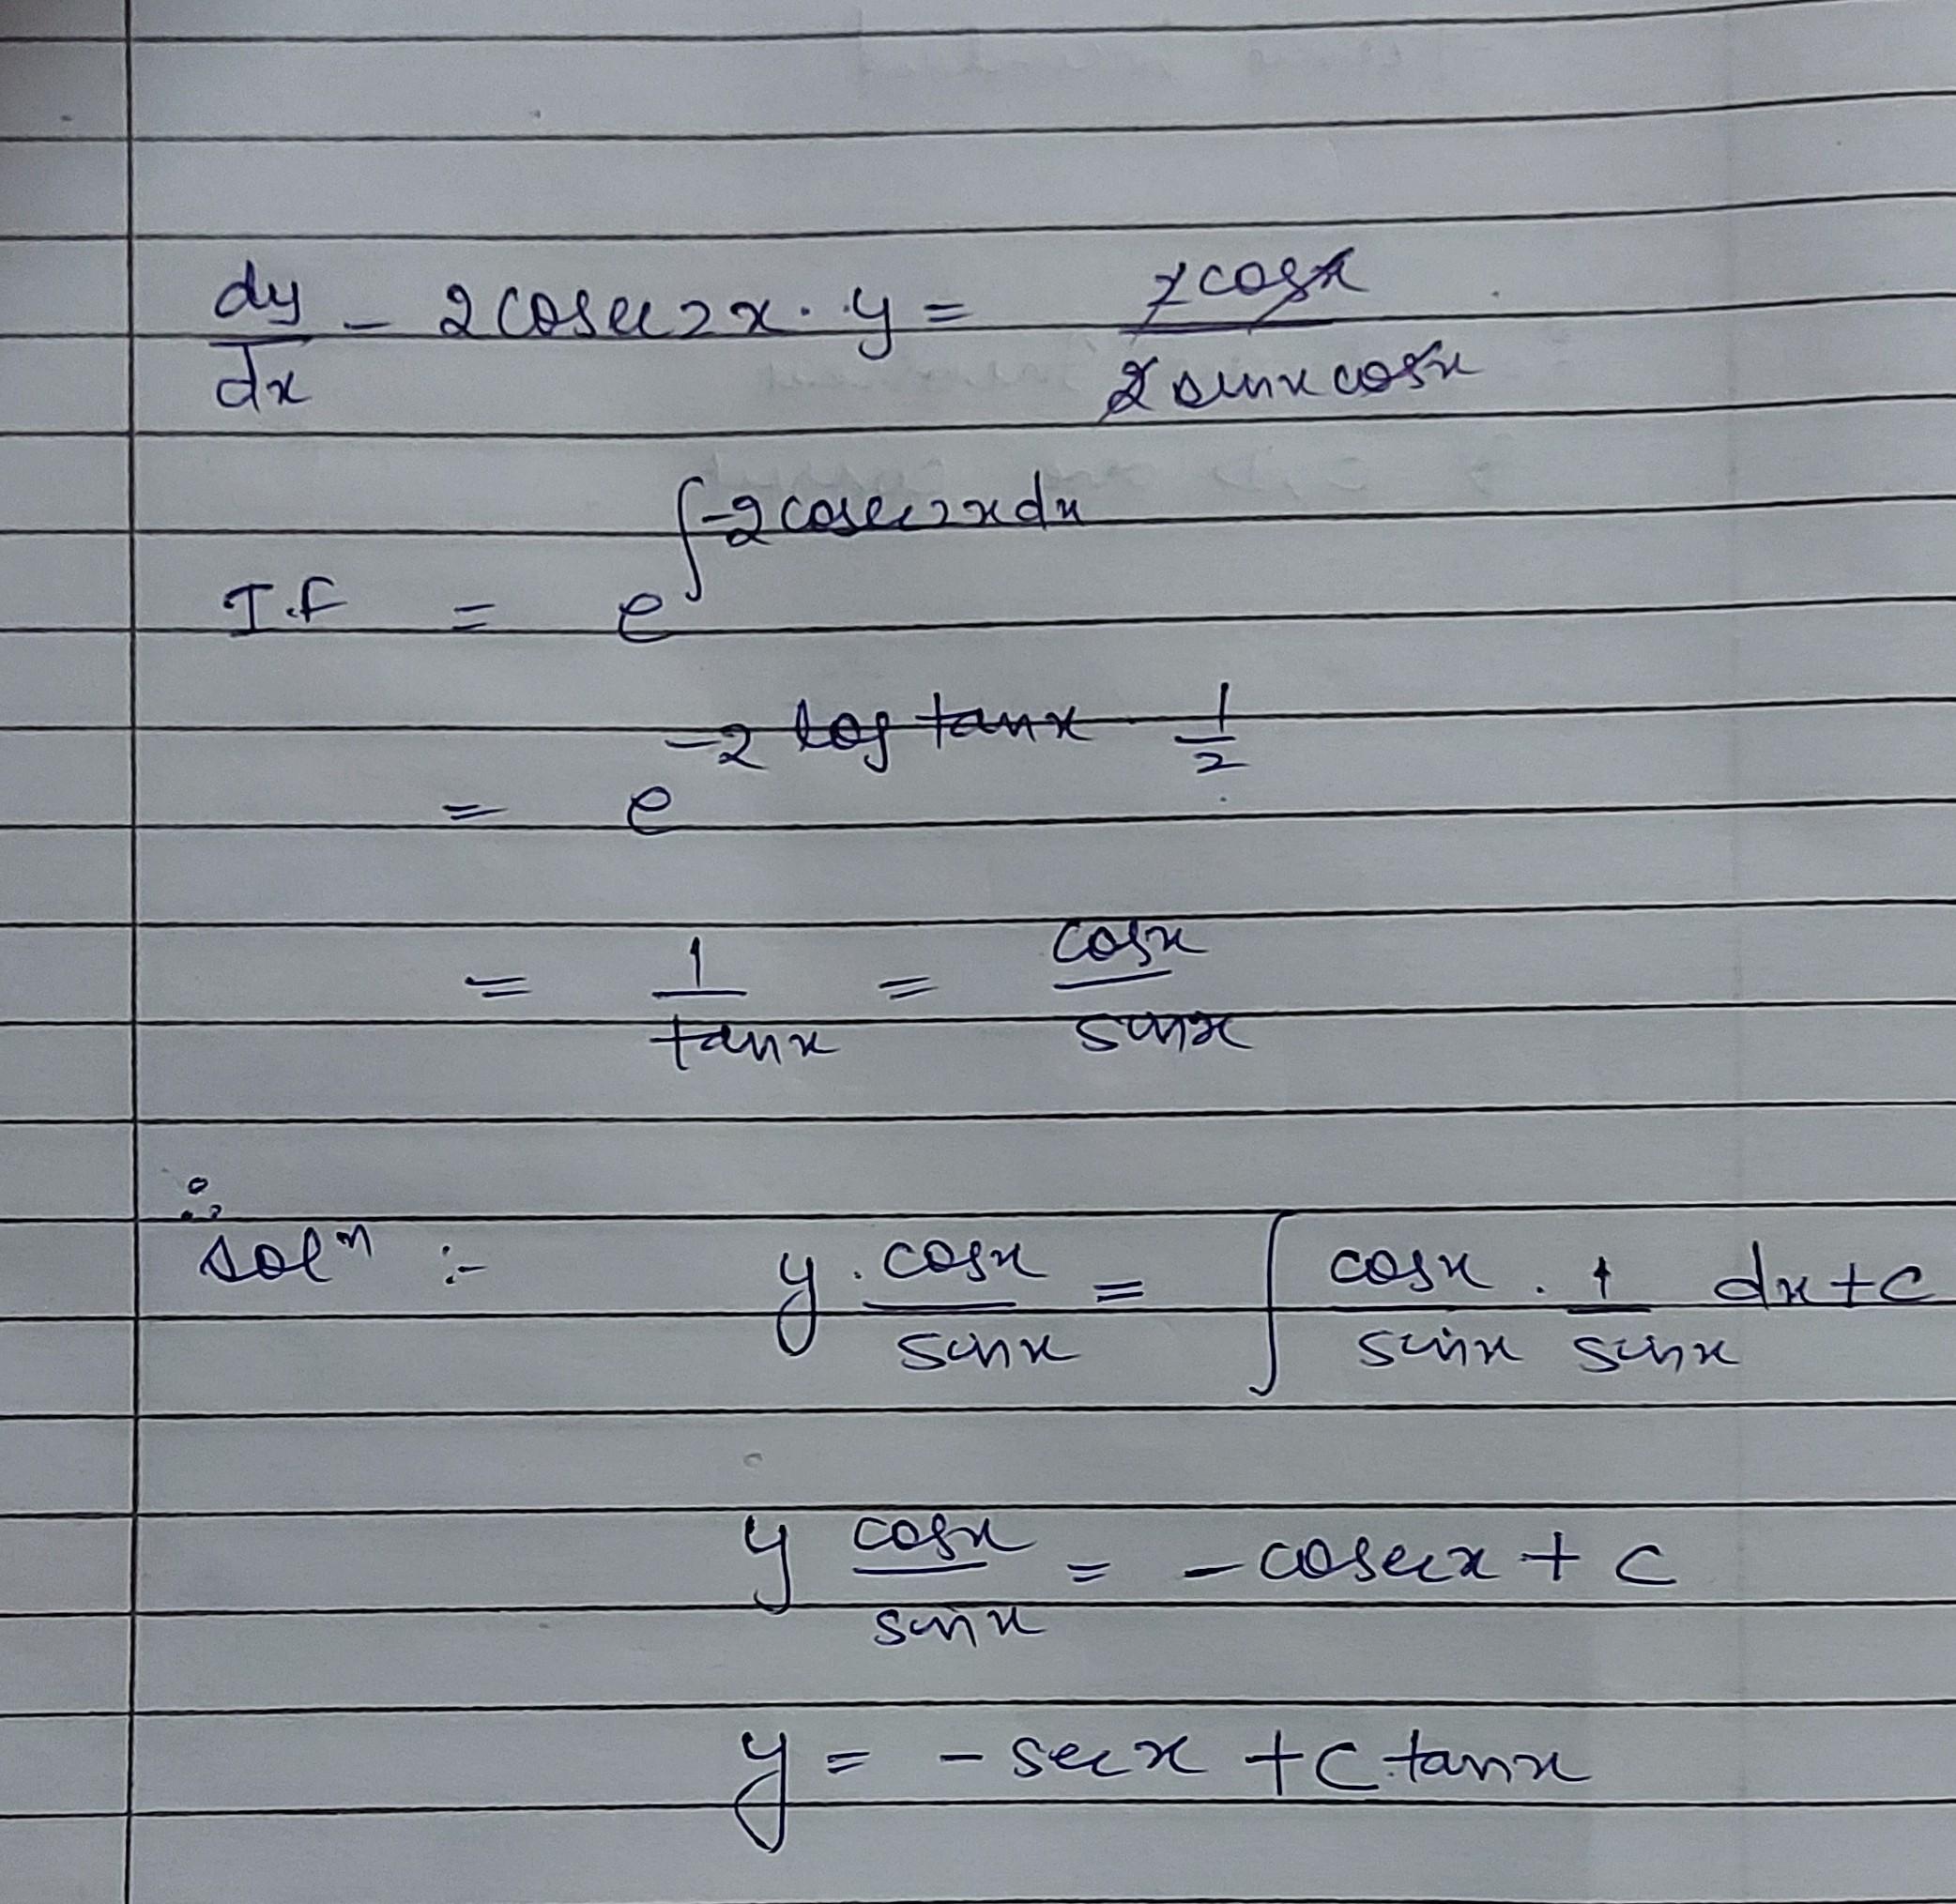 dy/dx - 2cosec2x. y = 2cosx / 2sinx cosx
I.F = e^∫-2cosec2xdx
= e^-2 log tanx 1/2
= 1/tanx = cosx/sinx
∴ solⁿ :- y. cosx/sinx = ∫ cosx/sinx . 1/sinx dx+c
y cosx/sinx = -cosecx + c
y = -secx + c.tanx